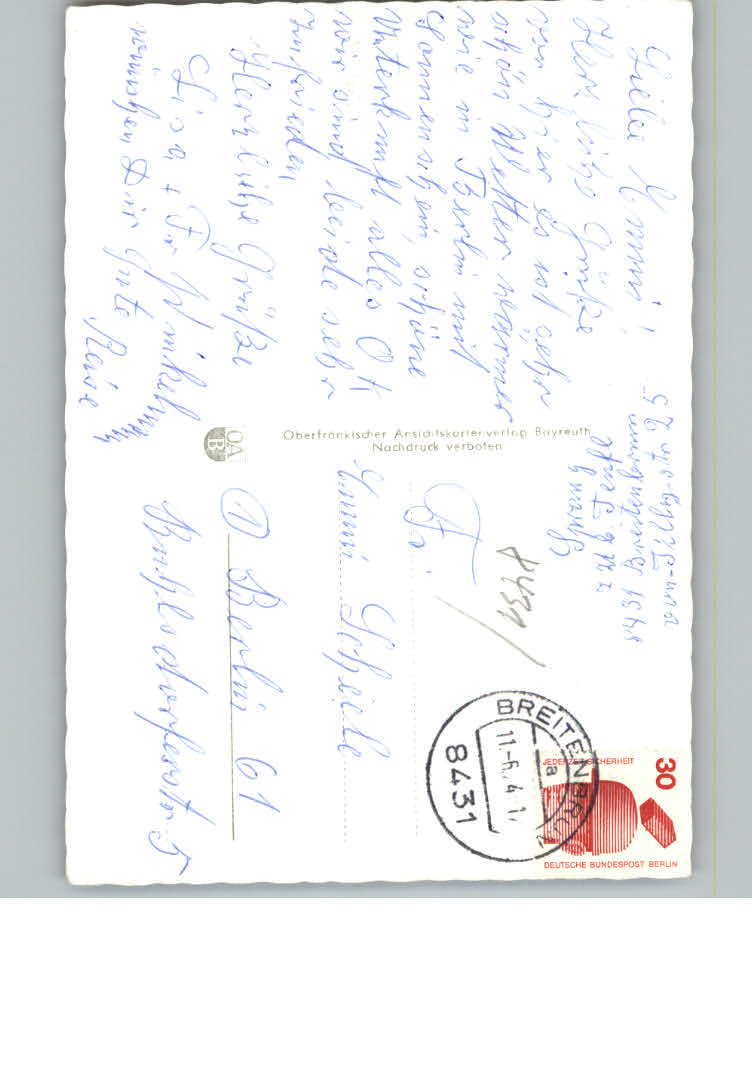 Liebe Emmi!
Herzliche Grüße
von hier es ist sehr
schön Wetter wärmer
wie in Berlin mit
Sonnenschein, schöne
Unterkunft alles OK
wir sind beide sehr
zufrieden
Herzliche Grüße
Lisa + Fr
wünschen Dir gute
Reise
OAB
Oberfränkischer Ansichtskartenverlag Bayreuth
Nachdruck verboten
8431 Breitenbrunn
8431
Fr.
Emmi Scheele
① Berlin 61
5
BREITENBRUNN
a
11.-6.
8431
30
JEDERZEIT SICHERHEIT
DEUTSCHE BUNDESPOST BERLIN